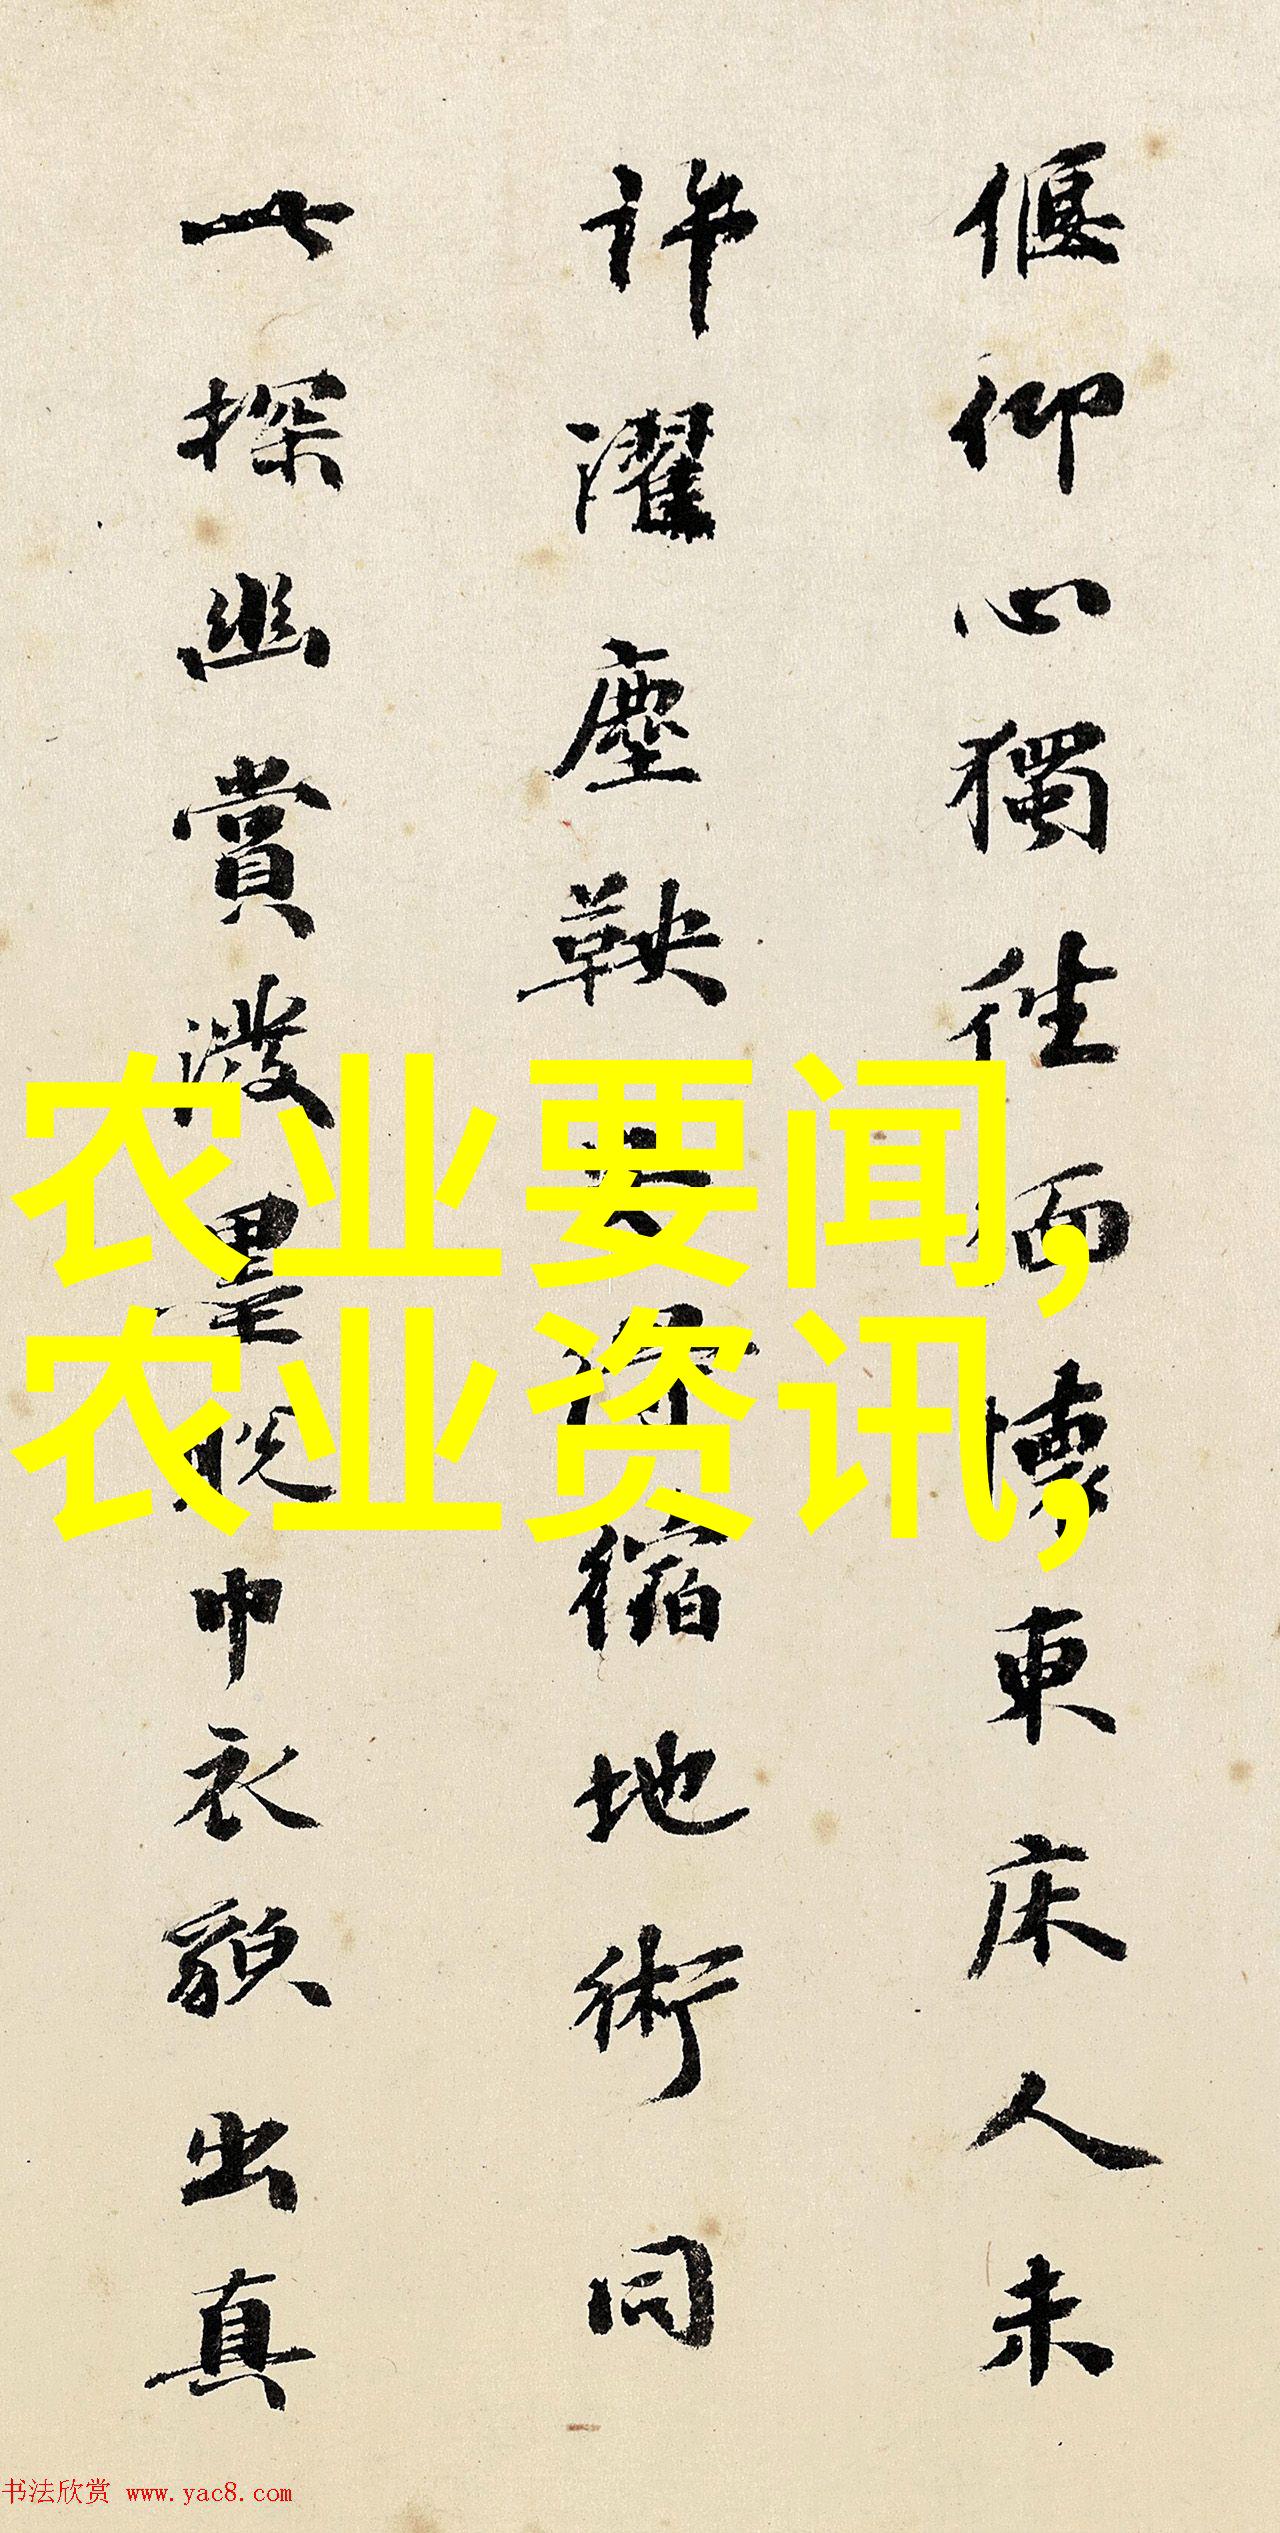 偃仰心獨往而懷東床人未
許濯塵鞅安得縮地術同
探幽賞潑墨脫巾衣貌出真
农业要闻,
农业资讯,
书法欣赏 www.yac8.com